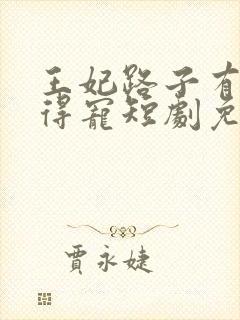 王妃路子有
得寵短劇免
賈永婕